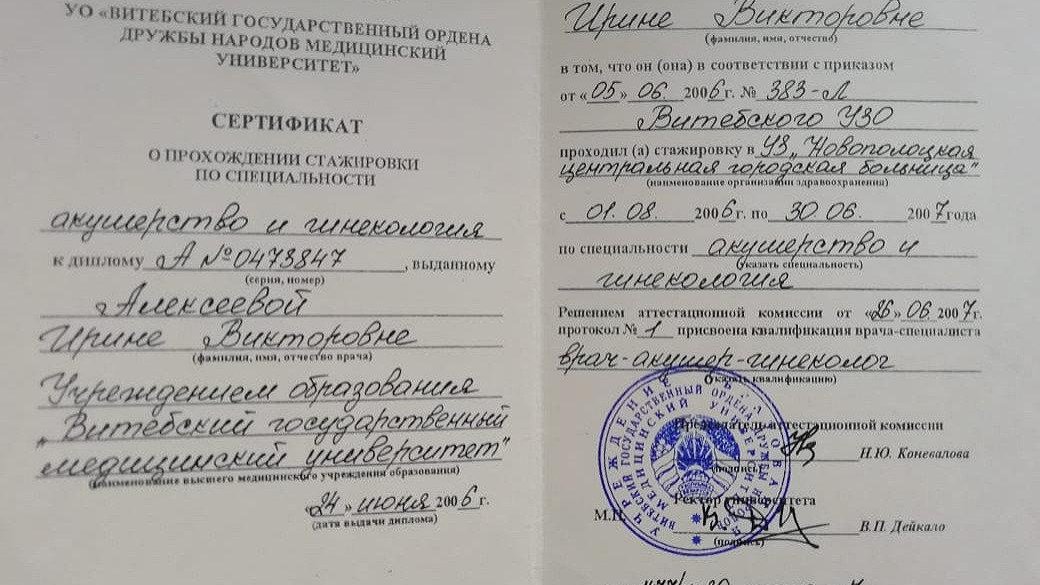 УО «ВИТЕБСКИЙ ГОСУДАРСТВЕННЫЙ ОРДЕНА
ДРУЖБЫ НАРОДОВ МЕДИЦИНСКИЙ
УНИВЕРСИТЕТ»
СЕРТИФИКАТ
О ПРОХОЖДЕНИИ СТАЖИРОВКИ
ПО СПЕЦИАЛЬНОСТИ
акушерство и гинекология
к диплому А №0473847, выданному
(серия, номер)
Алексеевой
Ирине Викторовне
(фамилия, имя, отчество врача)
Учреждением образования
„Витебский государственный
медицинский университет"
(наименование высшего медицинского учреждения образования)
«24» июня 2006 г.
(дата выдачи диплома)
Ирине Викторовне
(фамилия, имя, отчество)
в том, что он (она) в соответствии с приказом
от «05» 06. 2006 г. № 383-Л
Витебского УЗО
проходил (а) стажировку в УЗ „Новополоцкая
центральная городская больница"
(наименование организации здравоохранения)
с 01.08. 2006 г. по 30.06. 2007 года
по специальности акушерство и
(указать специальность)
гинекология
Решением аттестационной комиссии от «26» 06 2007 г.
протокол № 1 присвоена квалификация врача-специалиста
врач-акушер-гинеколог
(указать квалификацию)
Председатель аттестационной комиссии
Н.Ю. Коневалова
(подпись)
Ректор университета
М.П.
В.П. Дейкало
(подпись)